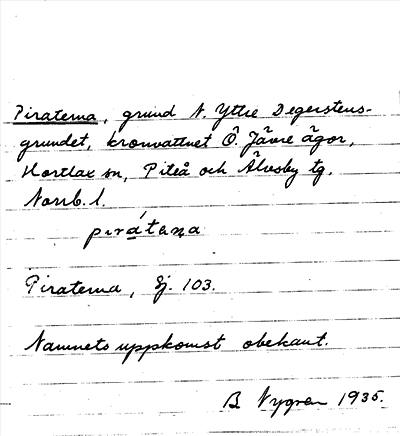 Piraterna, grund N. Yttre Degerstens-
grundet, kronvattnet Ö. Jävre ägor,
Hortlax sn, Piteå och Älvsby tg.
Norrb. l.
pirátеṇa
Piraterna, Sj. 103.
Namnets uppkomst obekant.
B Nygren 1935.